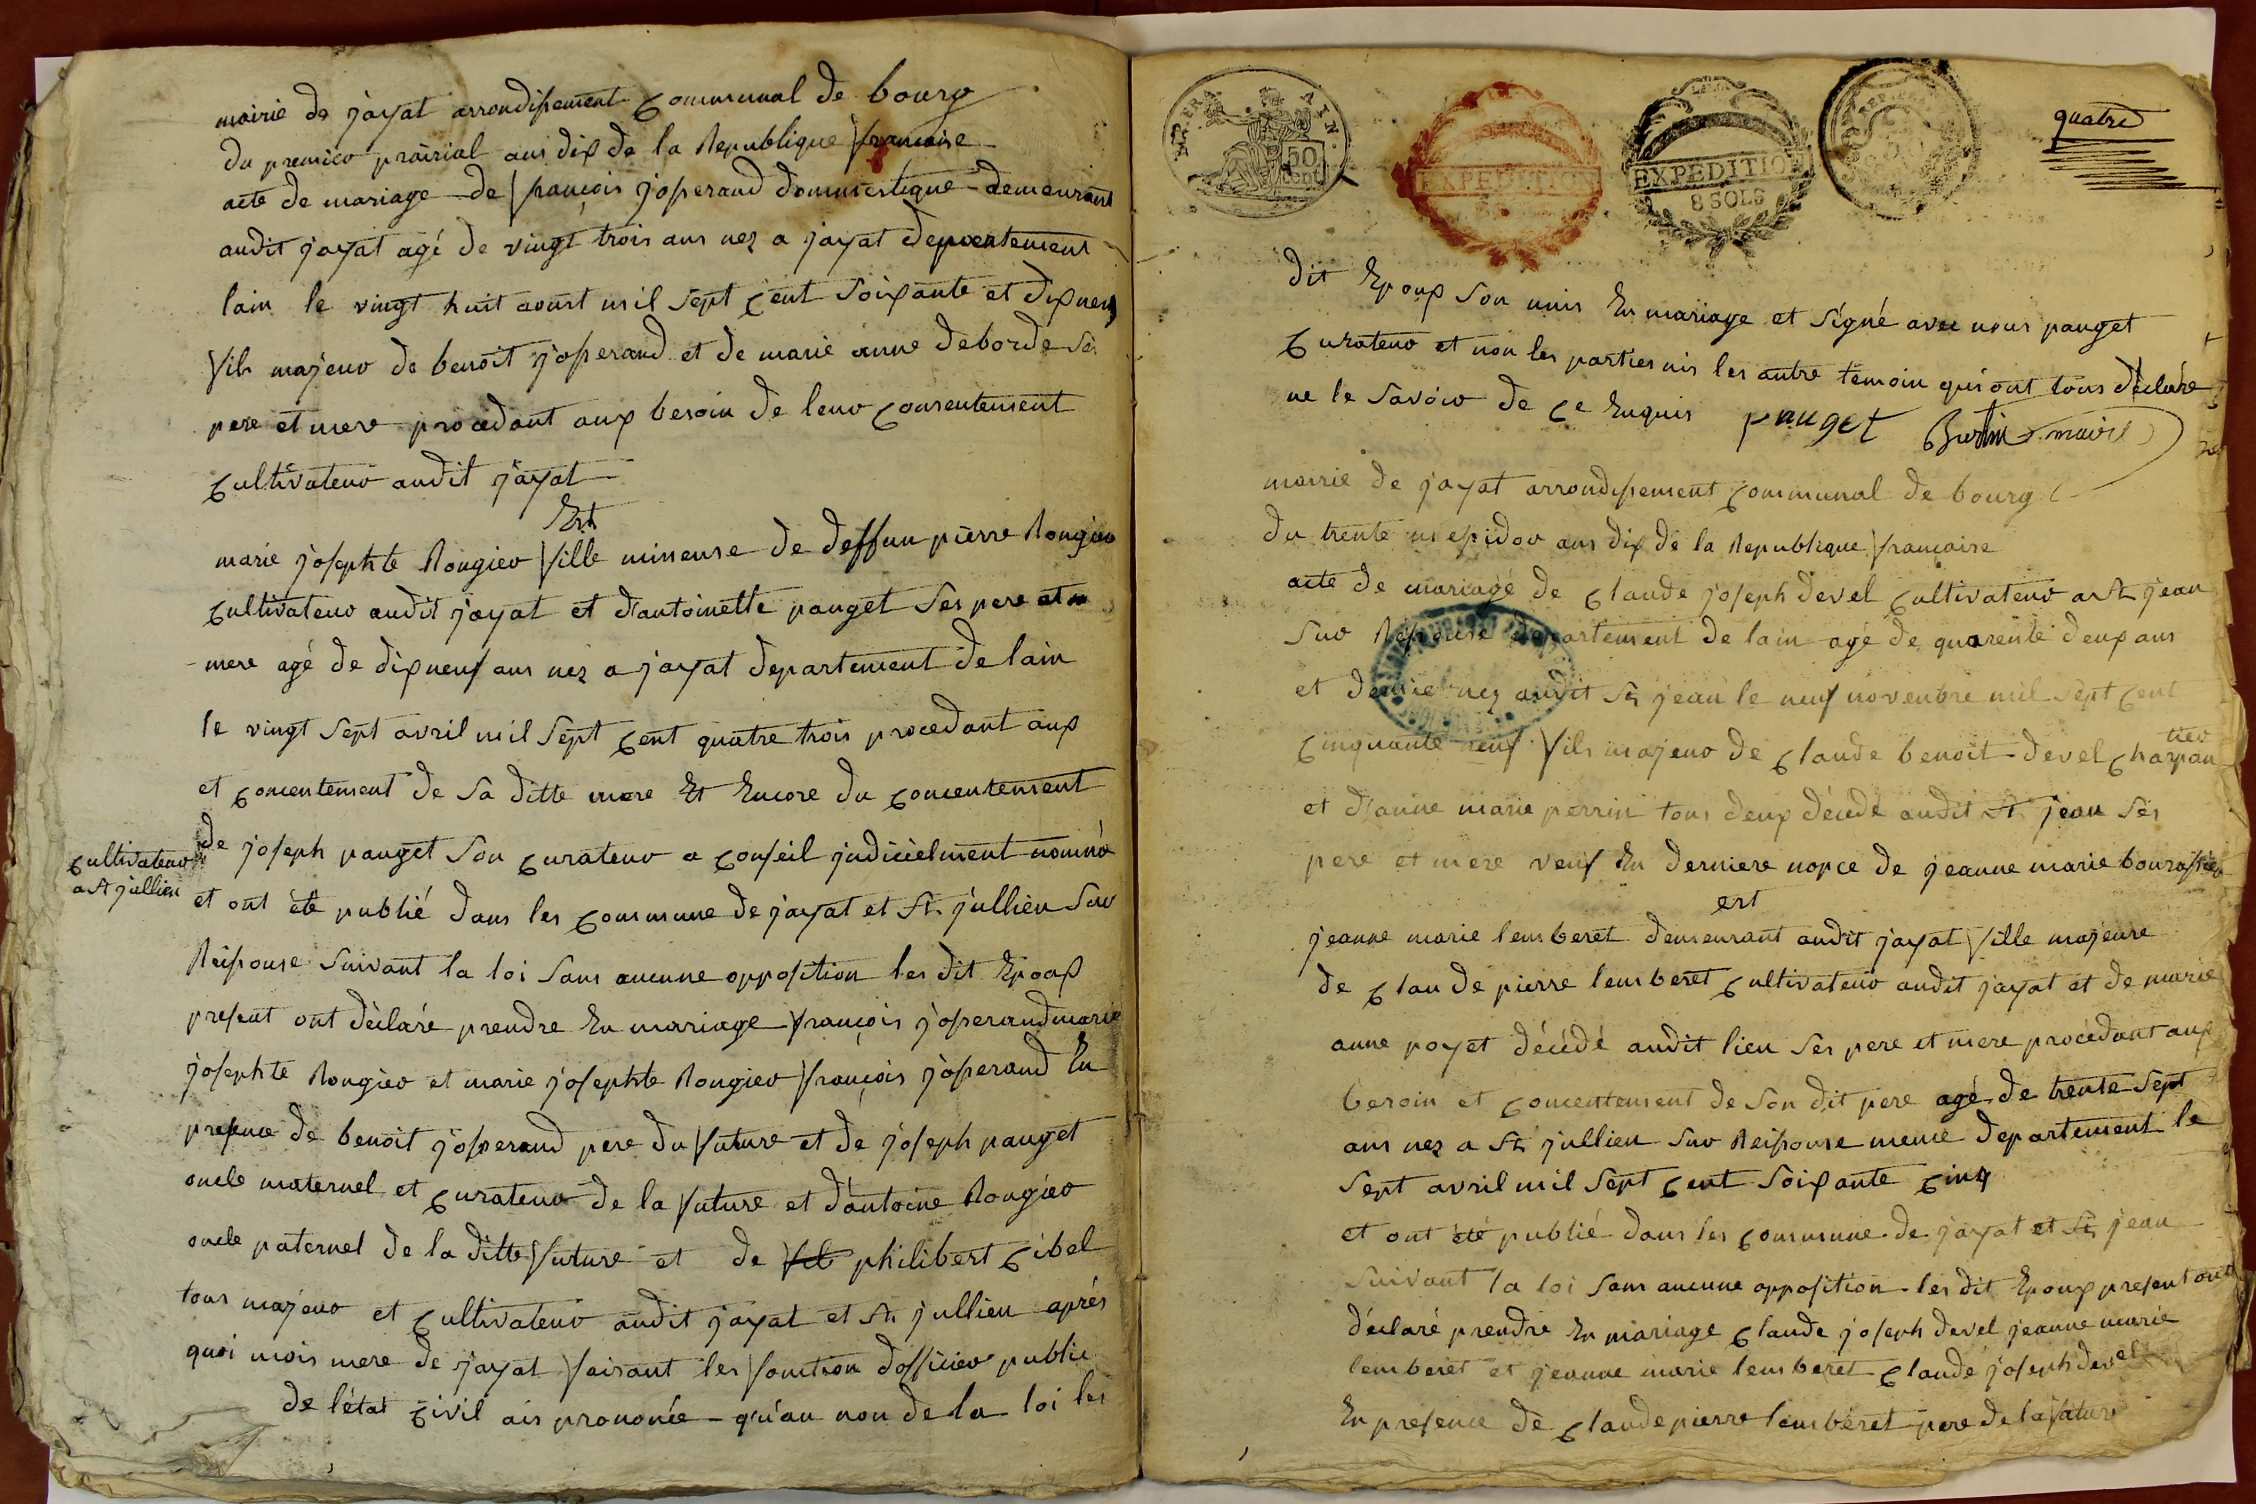 mairie de jayat arrondissement communal de bourg
du premier prairial ans dix de la Republique francaise
acte de mariage de françois josserand dommestique demeurant
audit jayat agé de vingt trois ans nez a jayat departement
lain le vingt huit aoust mil sept cent soixante et dixneuf
fils majeur de benoit josserand et de marie anne deborde ses
pere et mere procedant aux besoin de leur consentement
cultivateur audit jayat
Est
marie josephte Rougier fille mineure de deffun pierre Rougier
cultivateur audit jayat et d'antoinette pauget ses pere et
mere agé de dixneuf ans nez a jayat departement de lain
le vingt sept avril mil sept cent quatre trois procedant aux
et concentement de sa ditte mere Et Encore du concentement
de joseph pauget son curateur a conseil judicielment nommé
cultivateur
a St jullien
et ont èté publié dans les commune de jayat et St jullien sur
Reissouse suivant la loi sans aucunne opposition les dit Epoux
present ont dèclaré prendre En mariage françois josserand marie
josephte Rougier et marie josephte Rougier françois josserand En
presence de benoit josserand pere du future et de joseph pauget
oncle maternel et curateur de la future et d'antoine Rougier
oncle paternel de la ditte future et de philibert cibel
tous majeur et cultivateur audit jayat et St jullien après
quoi mois mere de jayat faisant les fonction d'officier public
de l'ètat civil ais prononcée qu'au non de la loi les
quatre
50
cent
EXPEDITION
EXPEDITION
8 SOLS
dit Epoux son unis En mariage et signé avec nous pauget
curateur et non les parties nis les autre temoin qui ont tous déclaré
ne le savoir de ce Enquis pauget Burtin maire
mairie de jayat arrondissement communal de bourg
du trente messidor ans dix de la Republique francaise
acte de mariage de claude joseph devel cultivateur a St jean
sur Reissouse departement de lain agé de quarente deux ans
et demie nez audit St jean le neuf novenbre mil sept cent
cinquante neuf fils majeur de claude benoit devel charpan
tier
et d'anne marie perrin tous deux décédé audit St jean ses
pere et mere veuf En derniere nopce de jeanne marie bourassier
est
jeanne marie lemberet demeurant audit jayat fille majeure
de claude pierre lemberet cultivateur audit jayat et de marie
anne poyet décédé audit lieu ses pere et mere procédant aux
besoin et concentement de son dit pere agé de trente sept
ans nez a St jullien sur Reissouse meme departement le
sept avril mil sept cent soixante cinq
et ont èté publié dans les commune de jayat et St jean
suivant la loi sans aucunne opposition les dit Epoux present ont
déclaré prendre En mariage claude joseph devel jeanne marie
lemberet et jeanne marie lemberet claude joseph devel
En presence de claude pierre lemberet pere de la future